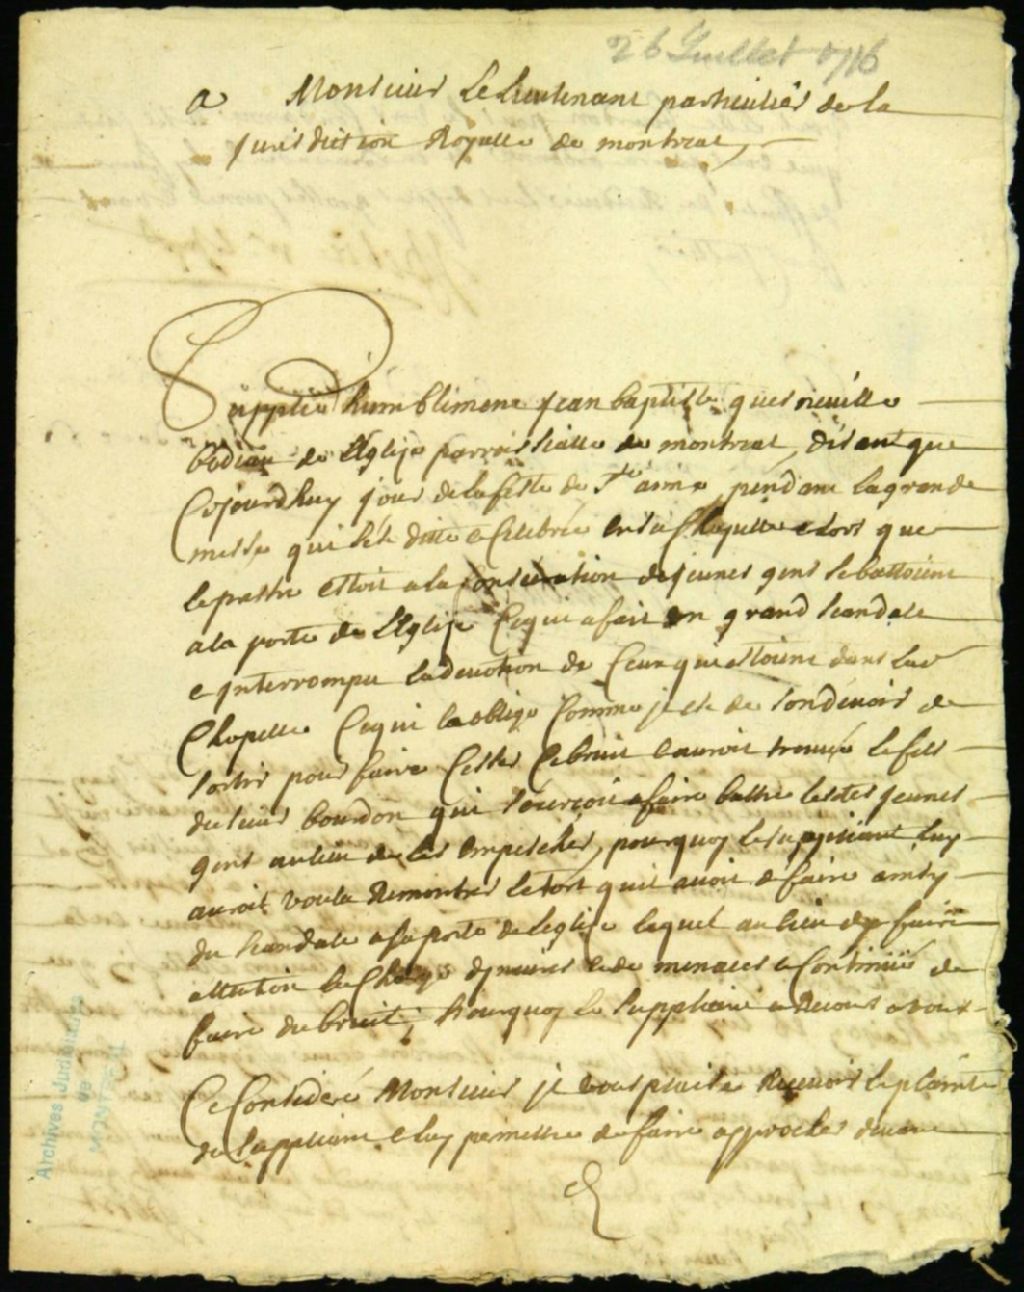 26 Juillet 1716
a Monsieur Le Lieutenant particulier de la
Jurisdiction Royalle de montreal,
Supplie humblement Jean baptiste quesneville
bedeau de l'Eglise parroissialle de montreal, disant que
Cejourdhuy jour de la feste de Ste anne, pendant la grande
messe qui s'est ditte e Celebrée en sa Chapelle e lors que
le prestre estoit a la Consecration de jeunes gens se battoient
a la porte de l'Eglise Cequi a fait un grand scandale
e Interrompu la devotion de Ceux qui estoient dans lad
Chapelle Cequi la obligé Comme il est de son devoir de
sortir pour faire Cesser le bruit e auroit trouvé le fils
du sieur bourdon qui s'éxerçoit a faire battre lesdts jeunes
gens au lieu de les empescher, pourquoy le supliant luy
auroit voulu Remontrer le tort quil avoit de faire ainsy
du scandale a la porte de leglise lequel au lieu dy faire
attention la Chargé d'Injures e de menaces e Continué de
faire du bruit, Pourquoy le suppliant a Recours a vous
Ce Consideré Monsieur il vous plaise Recevoir la plainte
du suppliant e luy permettre de faire approcher devant
Archives Judiciaires
de
MONTREAL